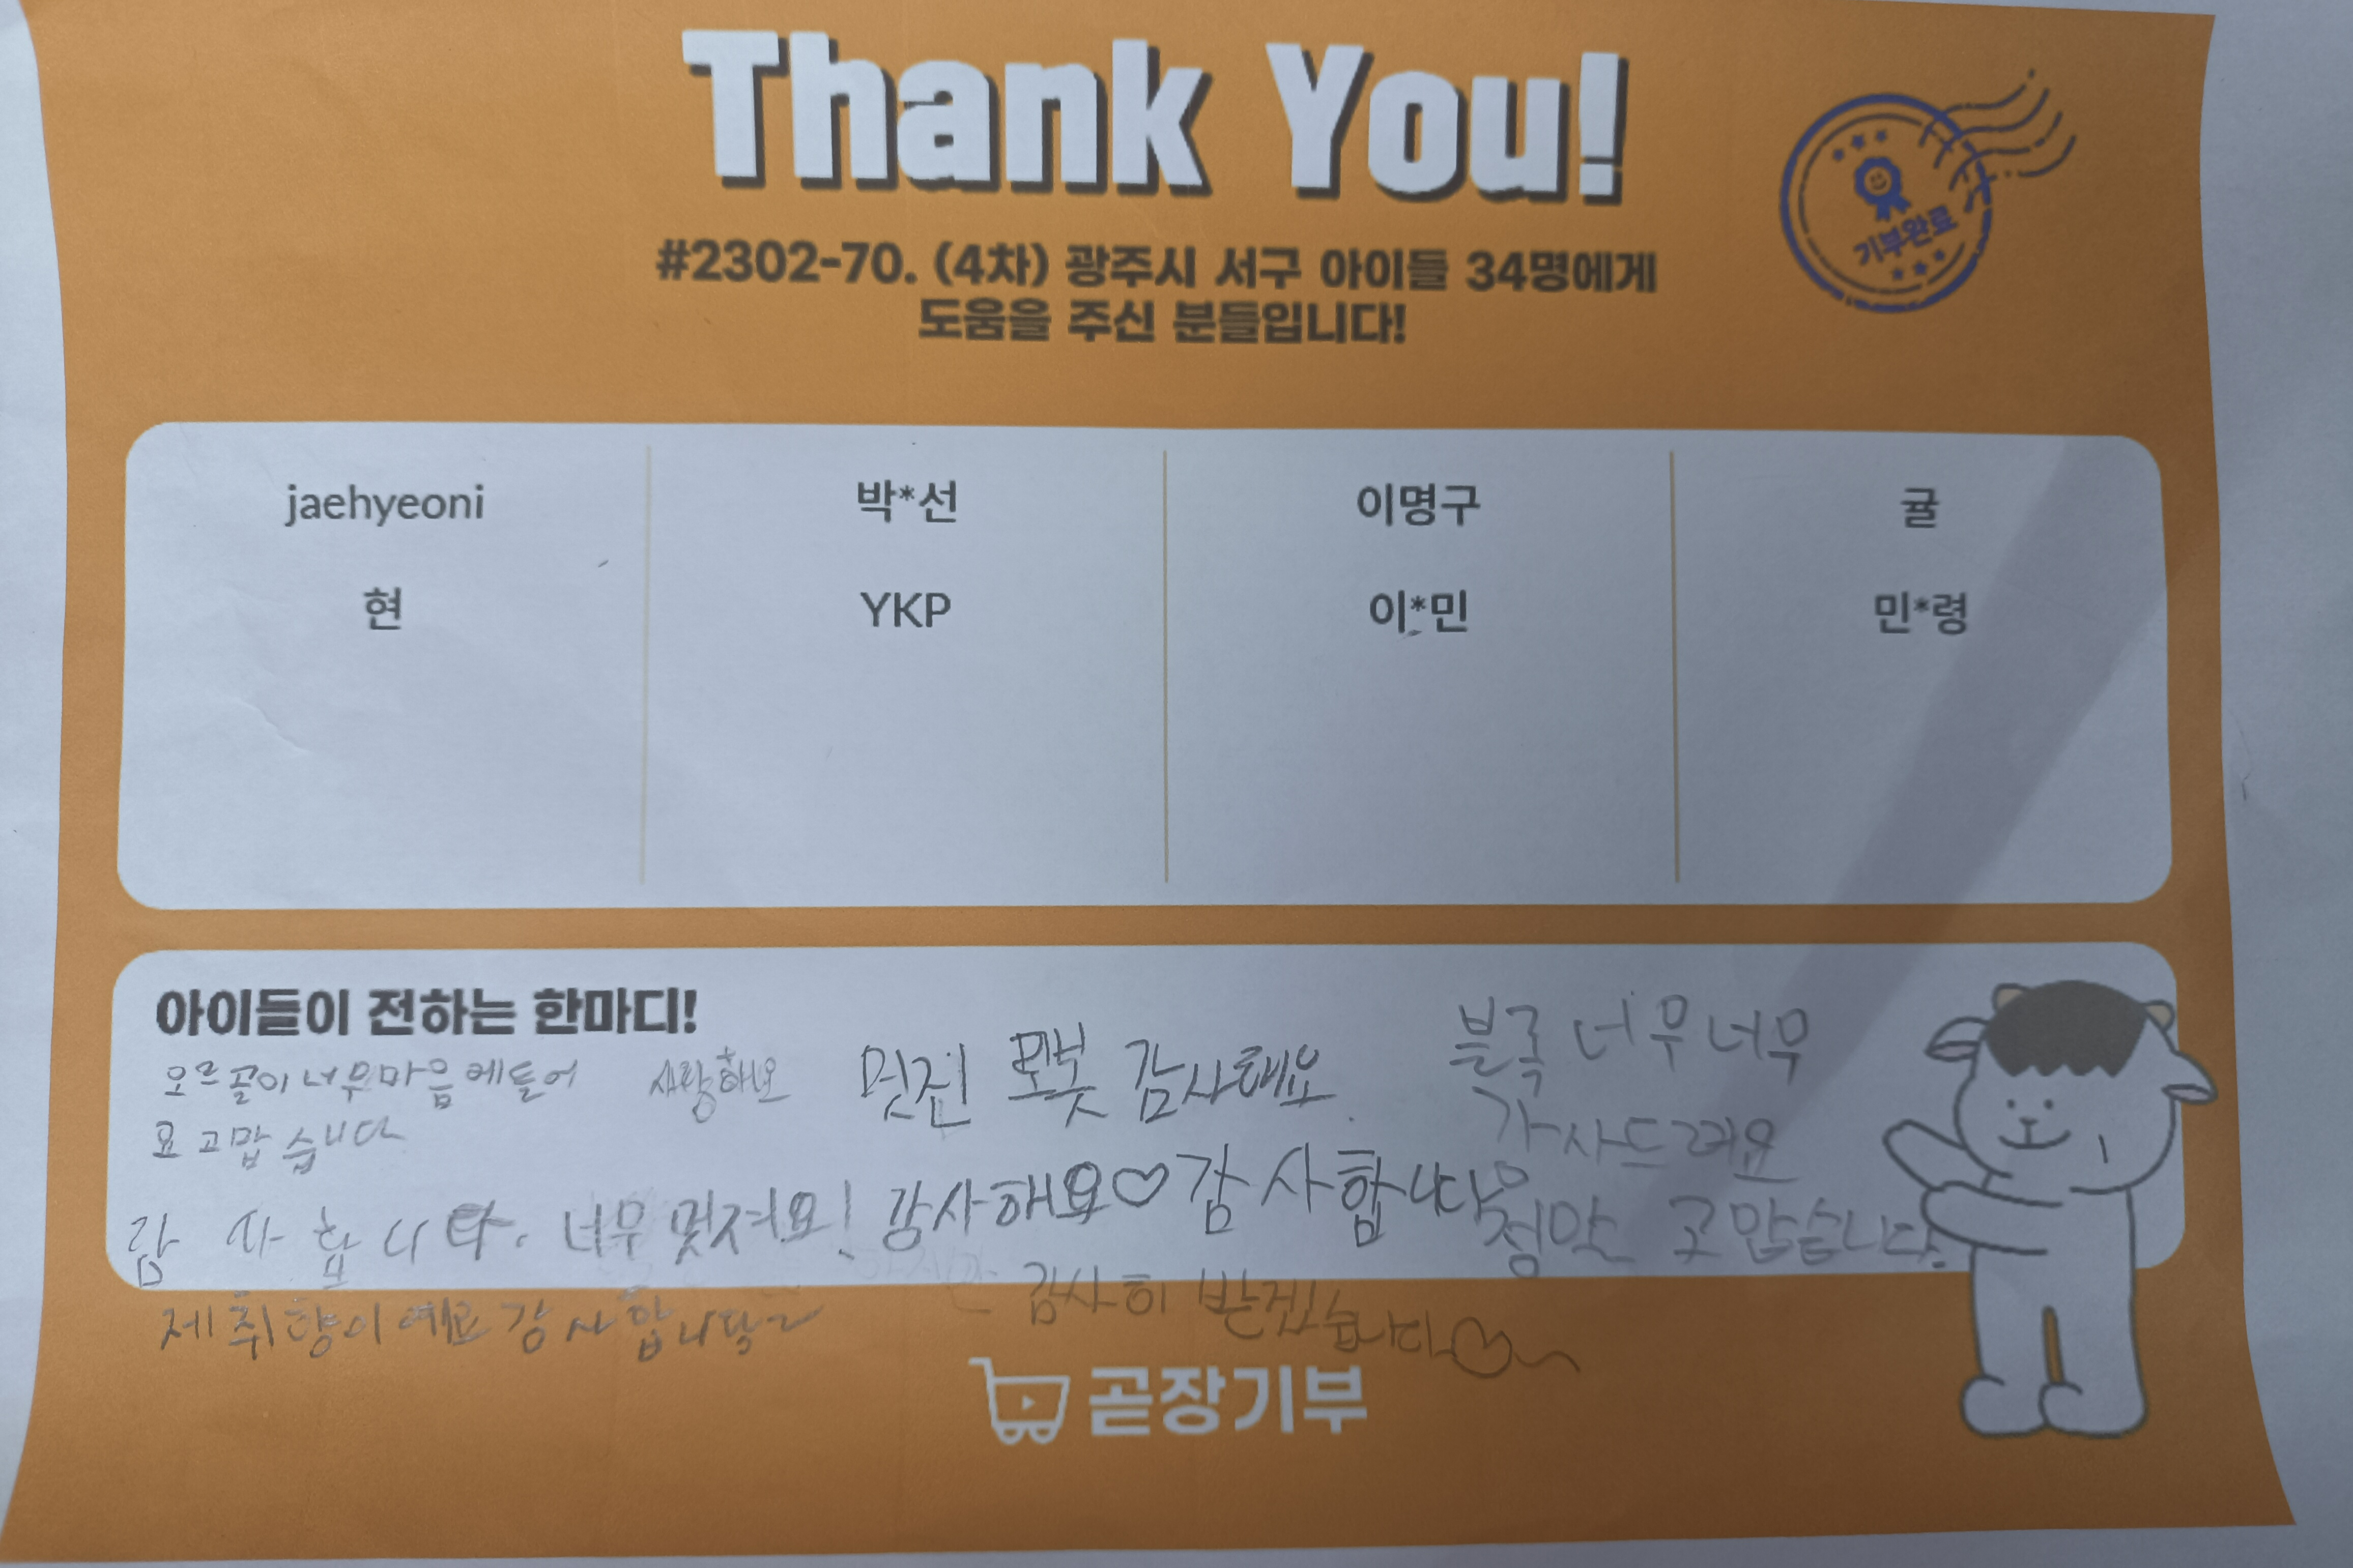 Thank You!
#2302-70. (4차) 광주시 서구 아이들 34명에게
도움을 주신 분들입니다!
기부완료
jaehyeoni 박*선 이명구 귤
현 YKP 이*민 민*령
아이들이 전하는 한마디!
오르골이 너무 마음에 들어
요 고맙습니다
사랑해요
멋진 로봇 감사해요.
블록 너무너무
감사드려요
감사합니다. 너무 멋져요! 감사해요♡ 감사합니당
정말 고맙습니다.
제 취향이예요 감사합니당~
감사히 받겠습니다♡~
곧장기부